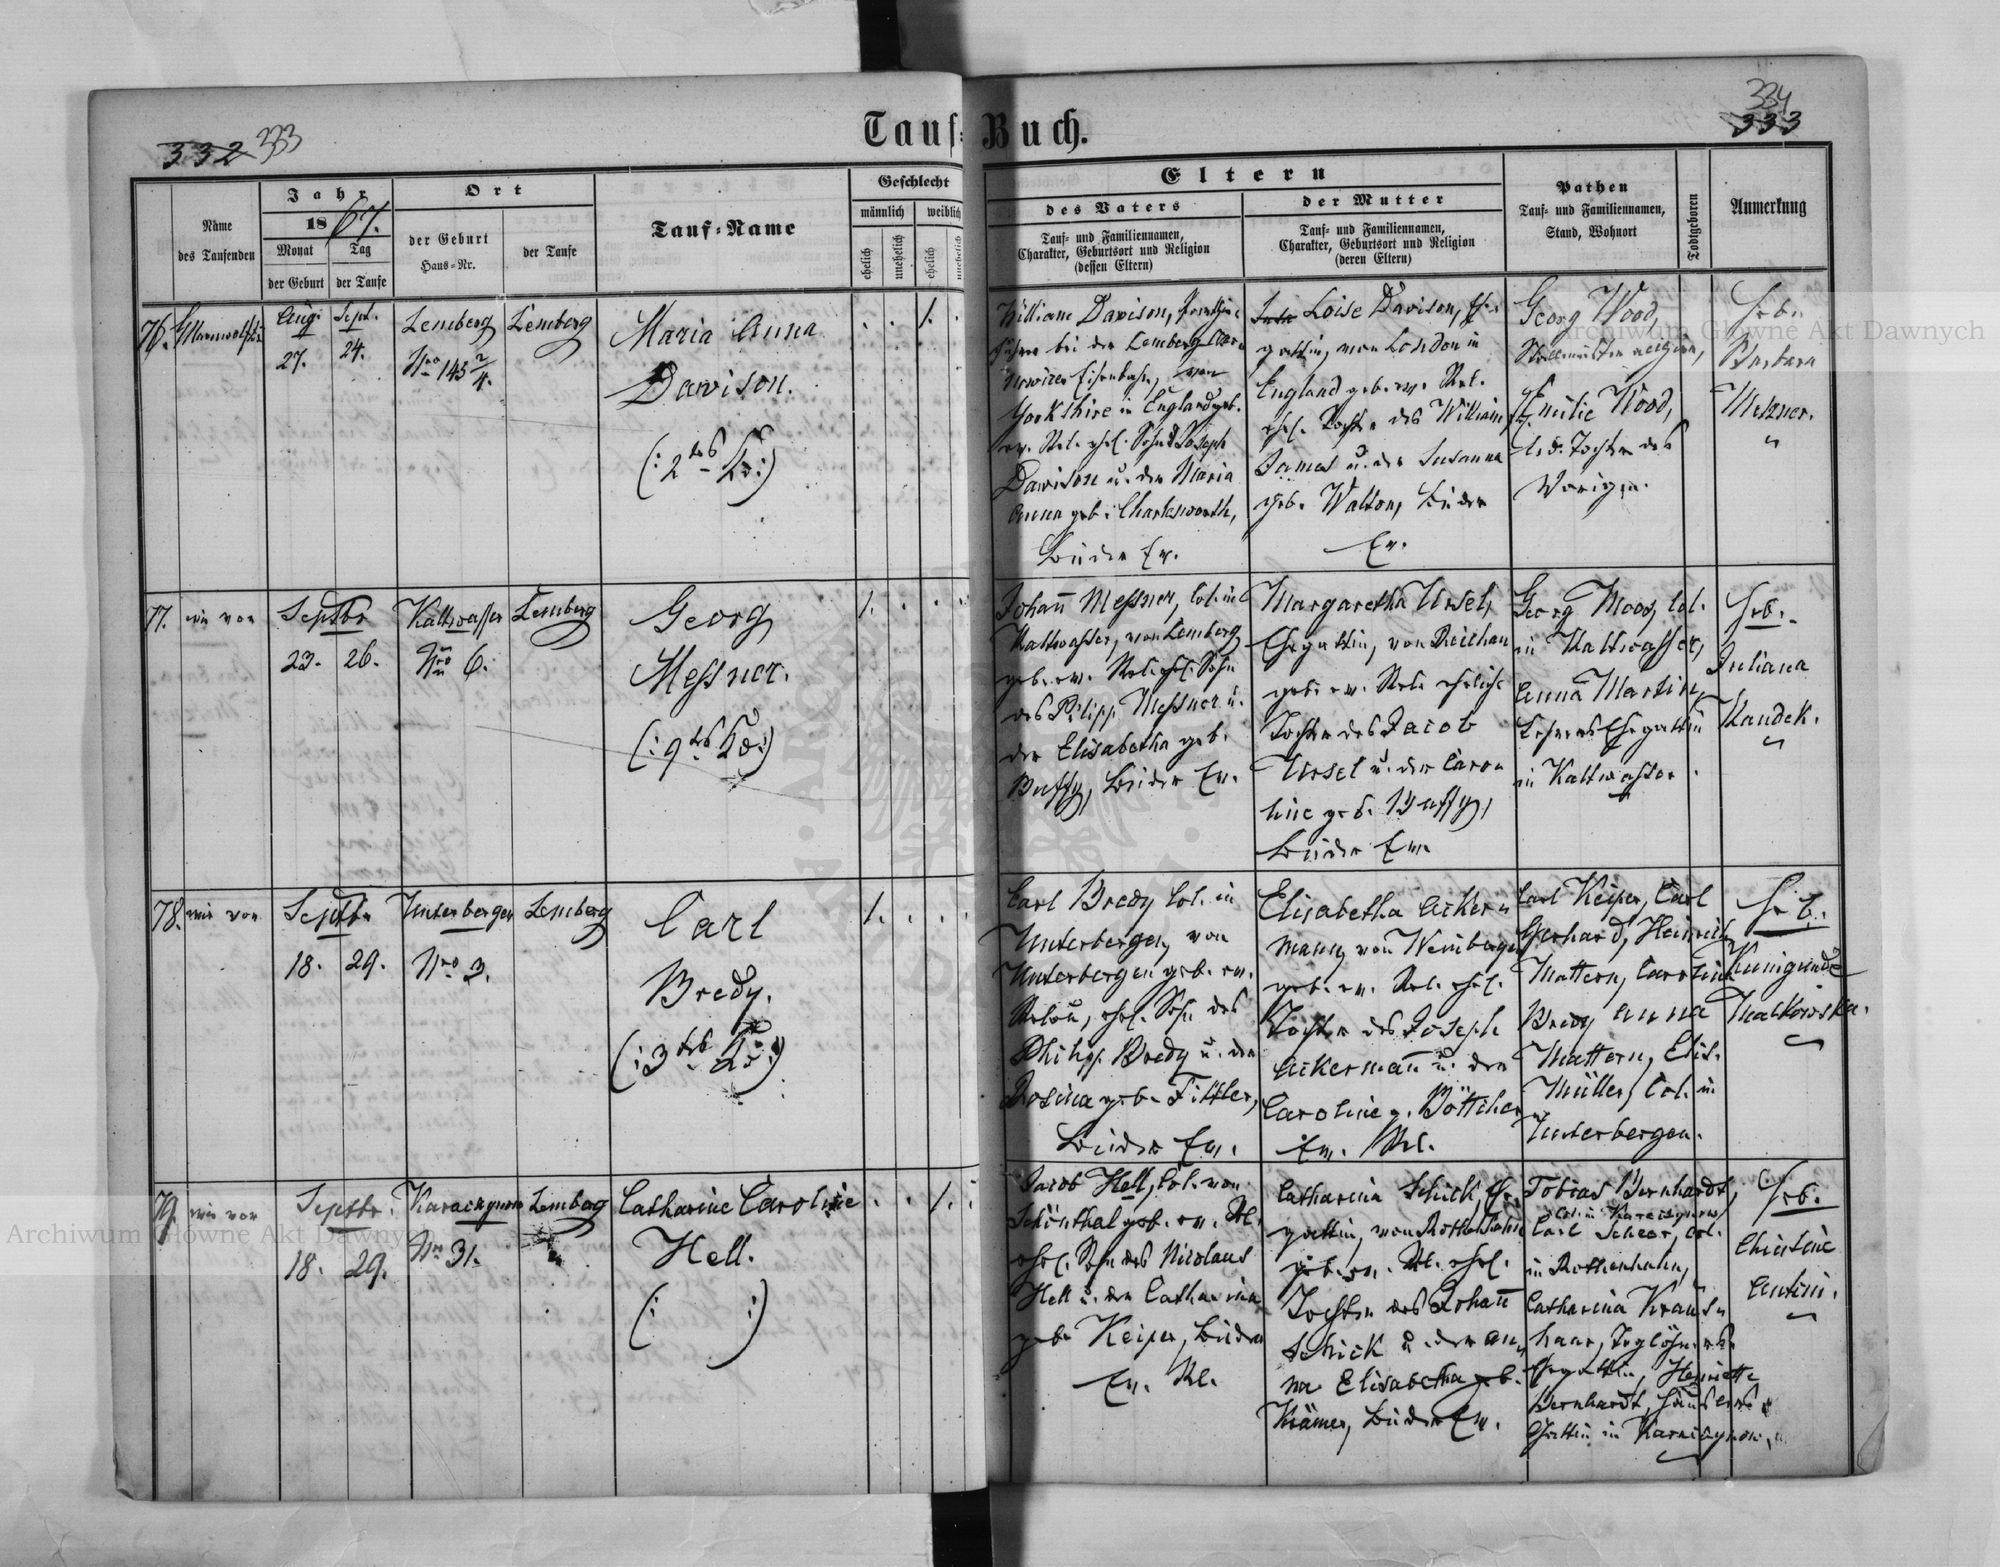 332 333
Tauf-Buch.
334
333
Name
des Taufenden
Jahr
1867.
Monat
der Geburt
Tag
der Taufe
Ort
der Geburt
Haus-Nr.
der Taufe
Tauf-Name
Geschlecht
männlich
weiblich
ehelich
unehelich
ehelich
unehelich
Eltern
des Vaters
Tauf- und Familiennamen,
Charakter, Geburtsort und Religion
(dessen Eltern)
der Mutter
Tauf- und Familiennamen,
Charakter, Geburtsort und Religion
(deren Eltern)
Pathen
Tauf- und Familiennamen,
Stand, Wohnort
Todtgeboren
Anmerkung
76.
Aug.
27.
Sept.
24.
Lemberg
Nro 145 2/4.
Lemberg
Maria Anna
Davison.
(: 2tes Kd :)
1.
William Davison,
bei der Lemberg Czer-
nowitzer Eisenbahn, von
Yorkshire in England geb.
ev. Rel. ehel. Sohn d Joseph
Davison u. der Maria
Anna geb. Charlesworth,
beider Ev.
Loise Davison, Ehe-
gattin, von London in
England geb. ev. Rel.
ehel. Tochter des William
James u. der Susanna
geb. Walton, beider
Ev.
Georg Wood,
Emilie Wood,
Tochter des
Vorigen.
Heb.
Barbara
Metzner.
77.
wie vor
Septbr
23. 26.
Kaltwasser
Nro 6.
Lemberg
Georg
Messner.
(: 9tes Kd :)
1.
Johann Messner, Col. in
Kaltwasser, von Lemberg
geb. ev. Rel. ehel. Sohn
des Philipp Messner u.
der Elisabetha geb.
Buffy, beider Ev.
Margaretha Ursel,
Ehegattin, von Reichau
geb. ev. Rel. eheliche
Tochter des Jacob
Ursel u. der Caro-
line geb. Buffy,
beider Ev.
Georg Moos, Col.
in Kaltwasser,
Anna Martin,
Lehrers Ehegattin
in Kaltwasser
Heb.
Juliana
Kandek.
78.
wie vor
Septbr
18. 29.
Unterbergen
Nro 3.
Lemberg
Carl
Bredy.
(: 3tes Kd :)
1.
Carl Bredy Col. in
Unterbergen, von
Unterbergen geb. ev.
Relon, ehel. Sohn des
Philipp Bredy u. der
Rosina geb. Fittler,
beider Ev.
Elisabetha Acker-
mann, von Weinbergen
geb. ev. Rel. ehel.
Tochter des Joseph
Ackermann u. der
Caroline g. Böttcher
Ev. Rel.
Carl Keiper, Carl
Gerhard, Heinrich
Mattern, Carolina
Bredy Anna
Mattern, Elis.
Müller, Col. in
Unterbergen.
Heb.
Kunigunde
Malkowska.
79.
wie vor
Septbr.
18. 29.
Nro 31.
Lemberg
Catharine Caroline
Hell.
(: :)
1.
Jacob Hell, Col. von
Schönthal geb. ev. Rel.
ehel. Sohn des Nicolaus
Hell u. der Catharina
geb. Keiper, beider
Ev. Rel.
Catharina Schick, Ehe-
gattin, von Rottenhahn
geb. ev. Rel. ehel.
Tochter des Johann
Schick u. der An-
na Elisabetha geb.
Krämer, beider Ev.
Tobias Bernhardt,
Carl Scheer, Col.
in Rottenhahn,
Catharina Kraus-
haar, Taglöhners
Ehegattin, Henriette
Bernhardt,
Gattin in
Heb.
Christine
Antoni.
Archiwum Główne Akt Dawnych
Archiwum Główne Akt Dawnych